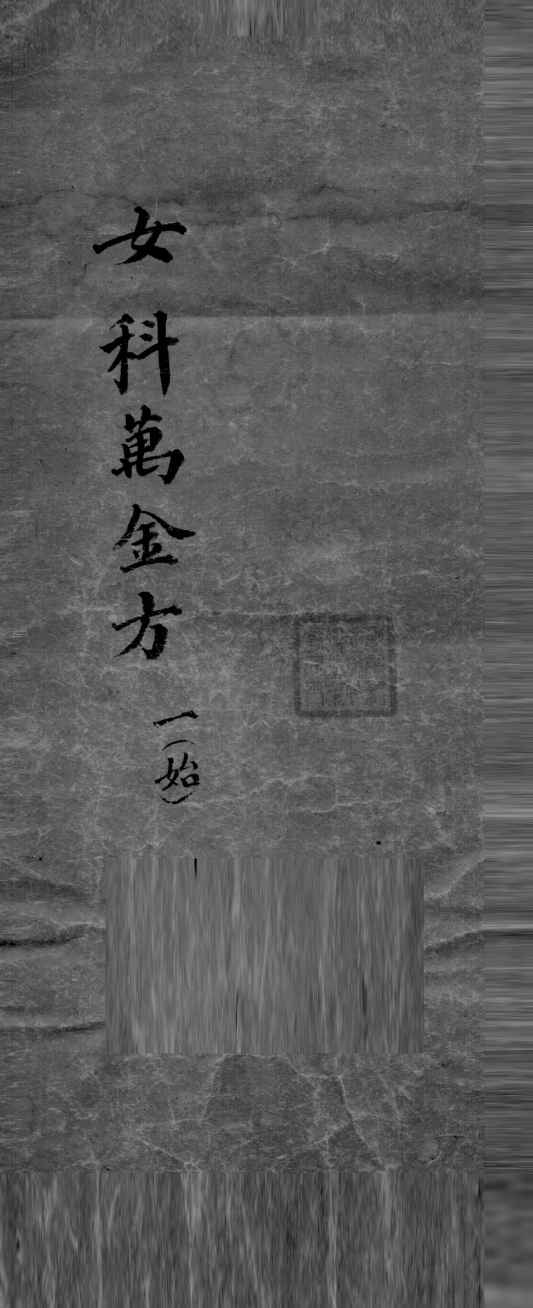 女科萬金方
一（始）